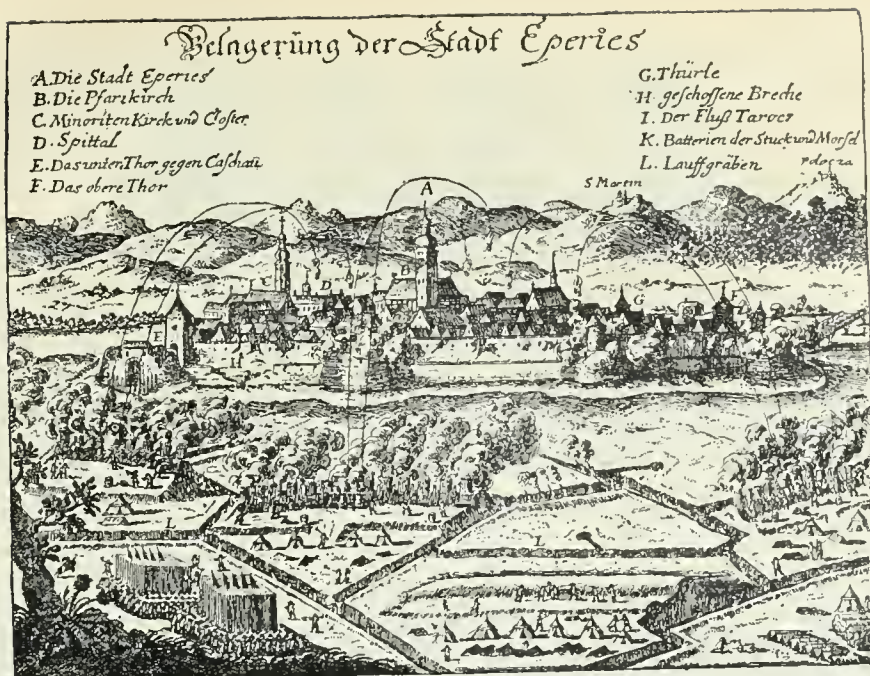 Belagerüng der Stadt Eperies
A. Die Stadt Eperies
B. Die Pfarrkirch
C. Minoriten Kirck und Closter
D. Spittal
E. Das unter Thor gegen Caschau
F. Das obere Thor
G. Thürle
H. geschossene Breche
I. Der Fluß Tarocz
K. Batterien der Stuck und Morsel
L. Lauffgräben
S Martin
A
D
B
G
E
H
L
L